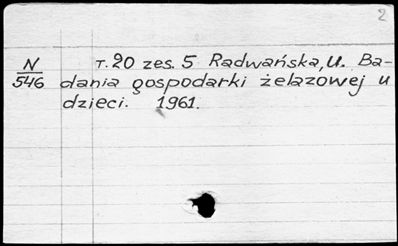 2
N т. 20 zes. 5 Radwańska, U. Ba-
546 dania gospodarki żelazowej u
dzieci. 1961.